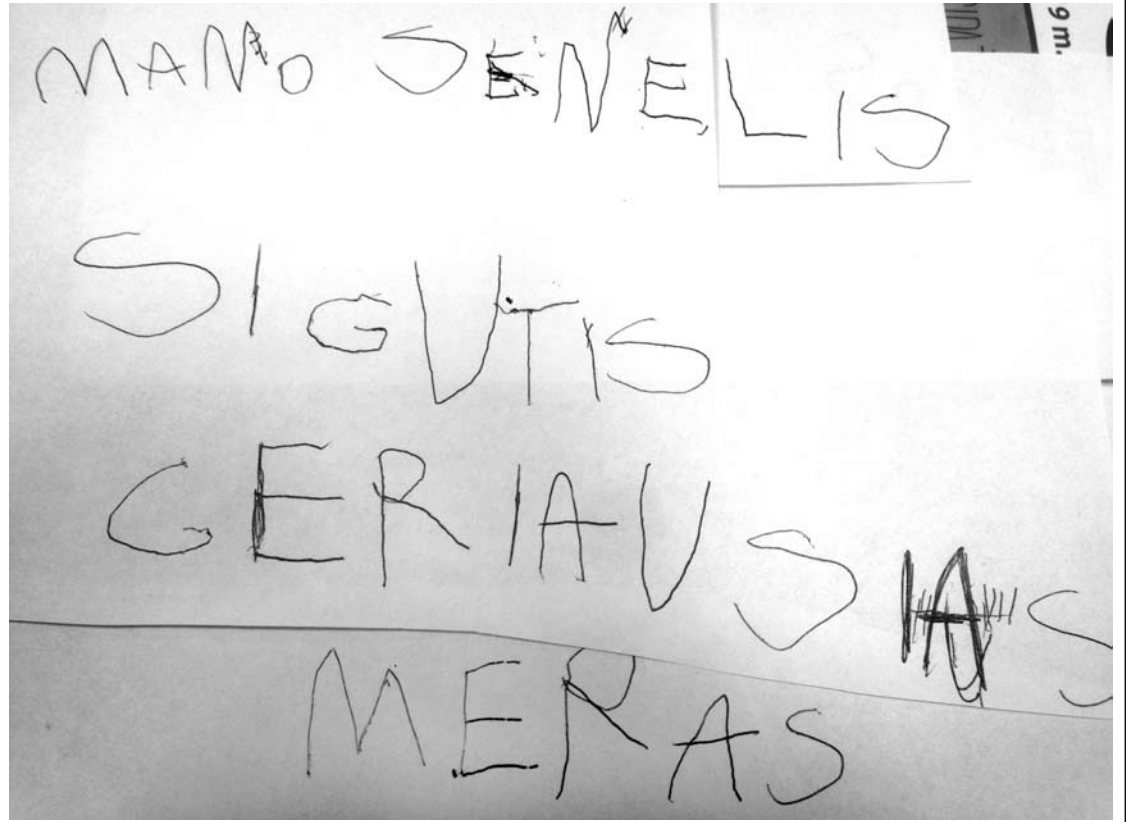 MANO SENELIS
SIGUTIS
GERIAUSIAS
MERAS
9 m.